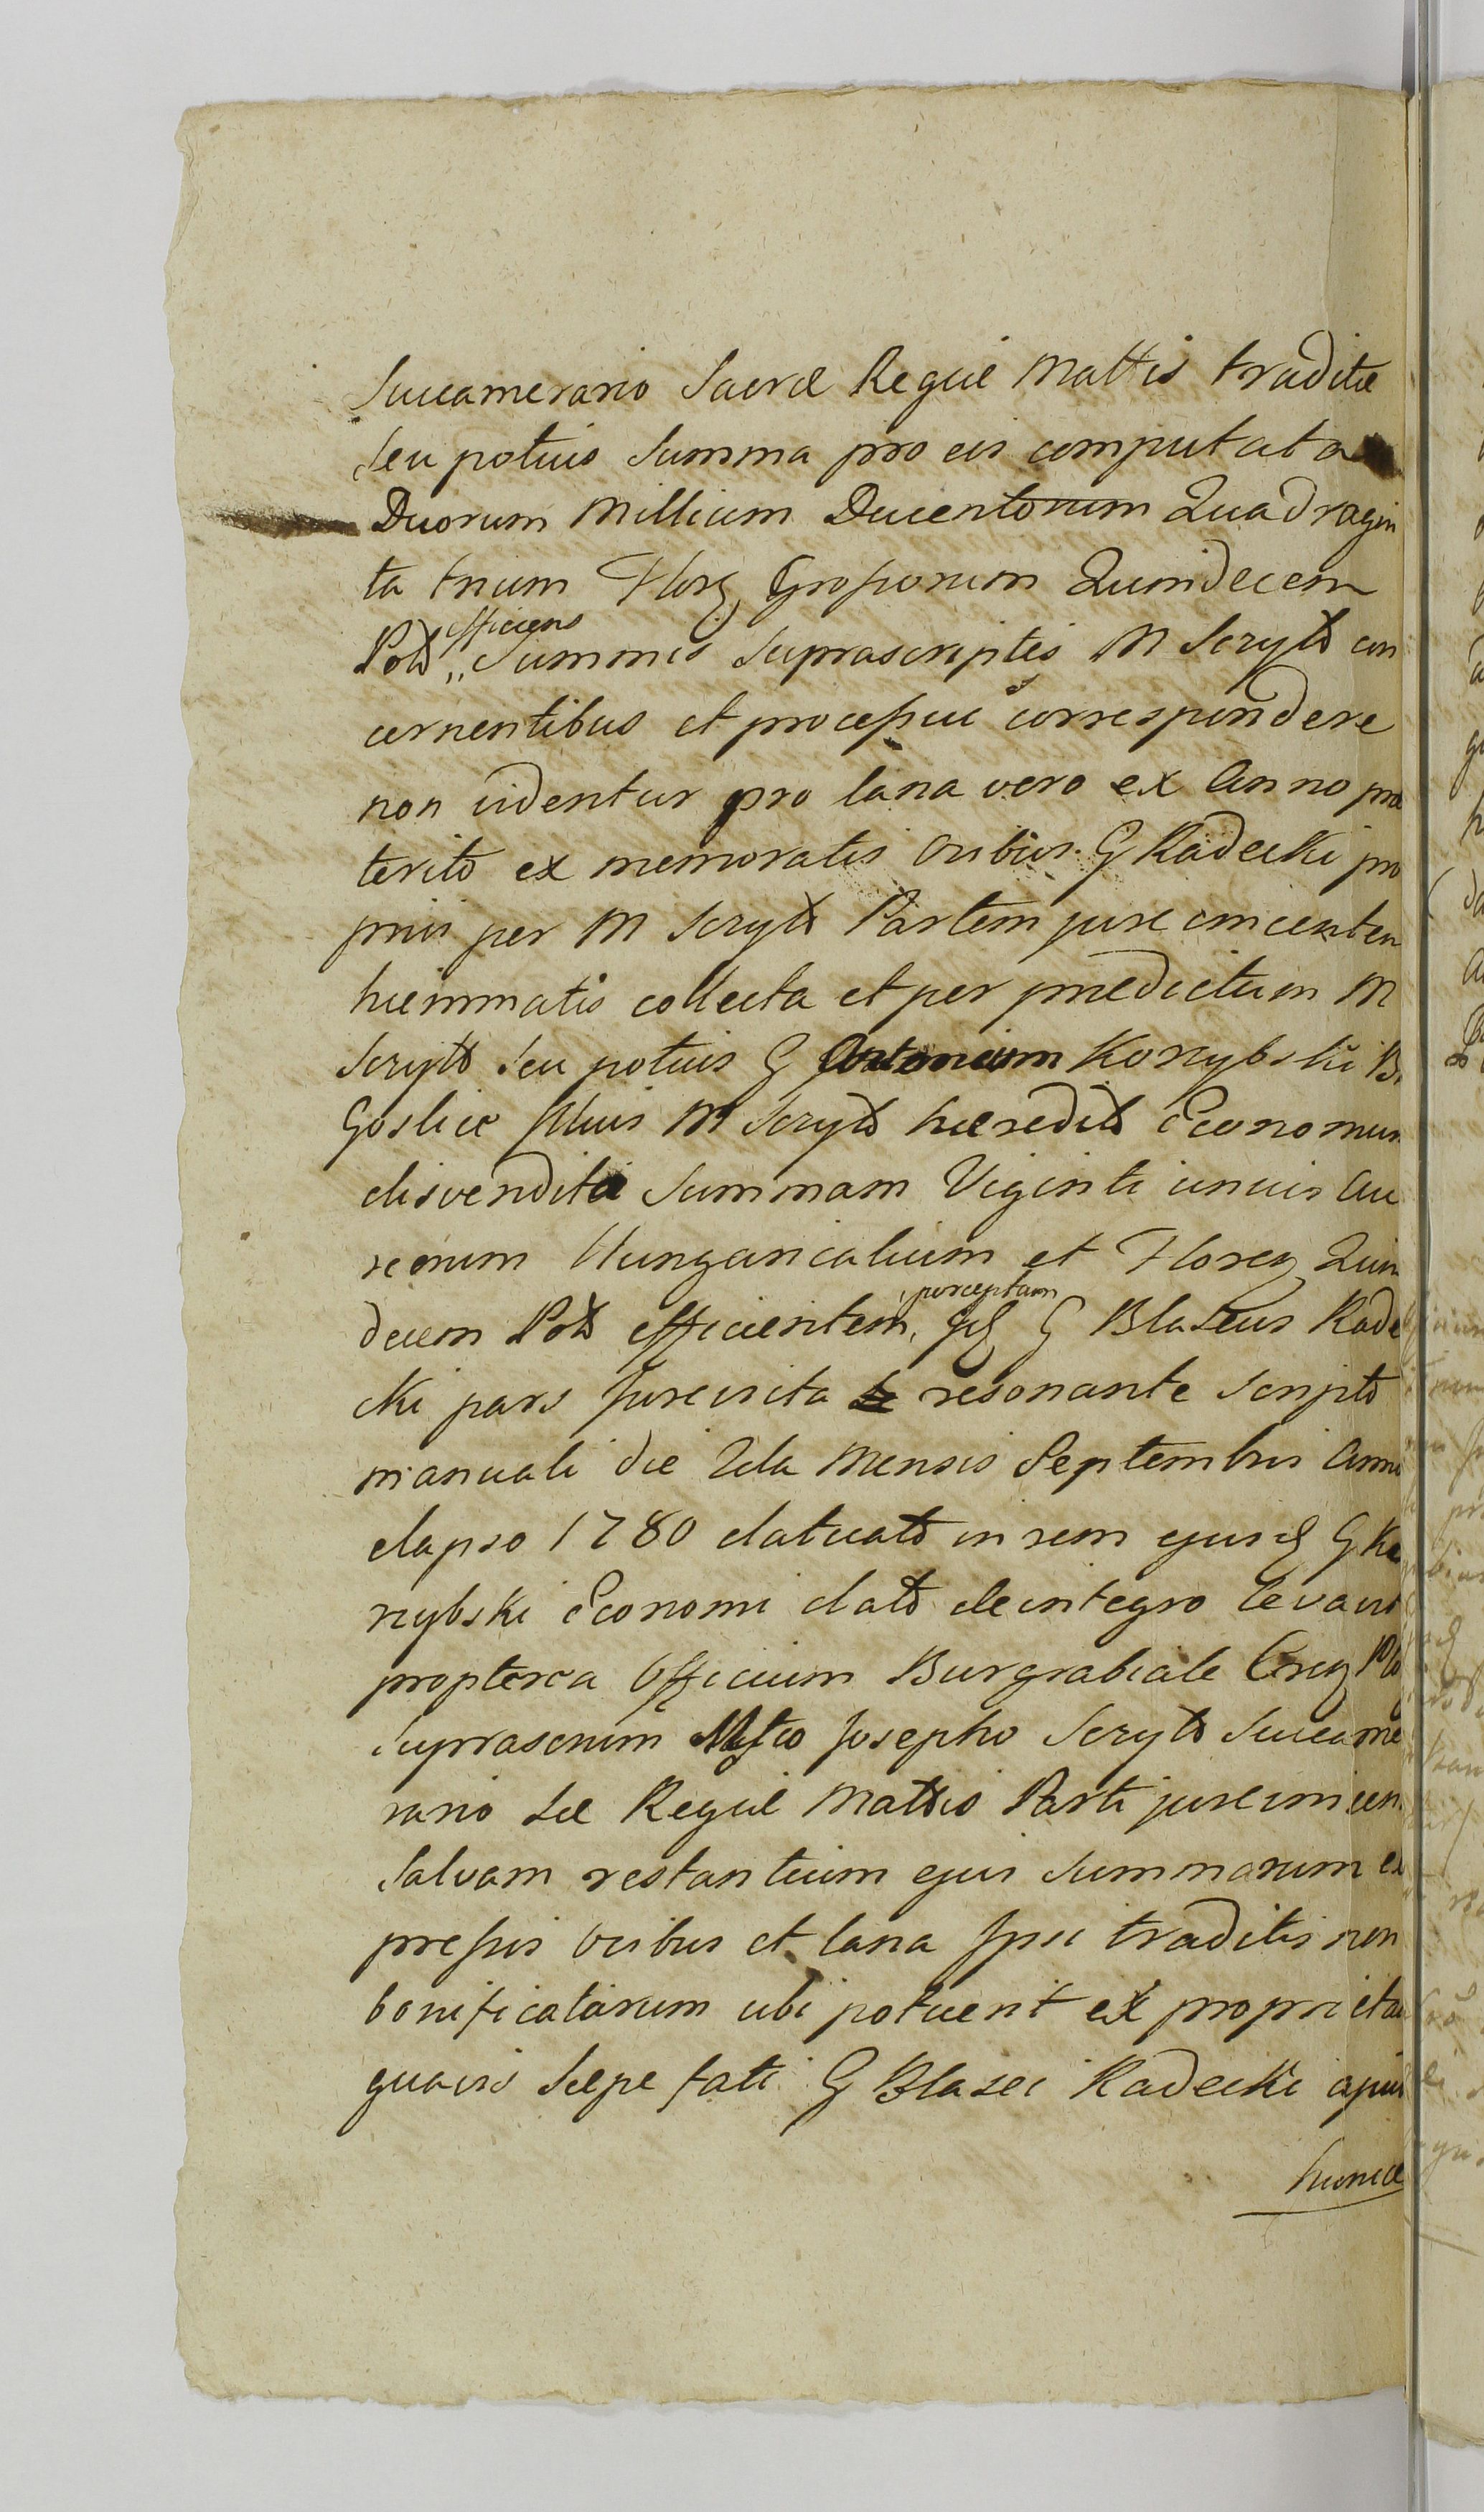 Succamerario Sacræ Regiæ Mattis traditæ
seu potius Summa pro eis computata
Duorum Millium Ducentorum Quadragin
ta trium Flor Grossorum Quindecem
Pol efficiens Summis suprascriptis M Scryp con
cernentibus et processui correspondere
non videntur pro lana vero ex Anno præ
terito ex memoratis ovibus G Radecki pro
priis per M Scryp Partem jurevincenten
hiemmatis collecta et per prædictum M
Scryp seu potius G Antonium Konybski B
Goslice illius M Scryp hæredit Œconomum
disvendita Summam Viginti unius Au
reorum Hungaricalium et Floren Quin
decem Pol efficientem, perceptam G Blaseus Rade
cki pars Jurevicta resonante Scripto
manuali die 2da Mensis Septembris Anno
elapso 1780 datuato in rem ejusd G Ko
nybski Œconomi dato deintegro levavit
propterea Officium Burgrabiale
Suprascrium Josepho Scryp Succame
rario Sæ Regiæ Mattis Parti jurevincen
Salvam restantium ejus Summarum ex
pressis ovibus et lana Ipsi traditis non
bonificatarum ubi potuerit ex proprieta
quavis Sæpe fati G Blasei Radecki apud
hunice